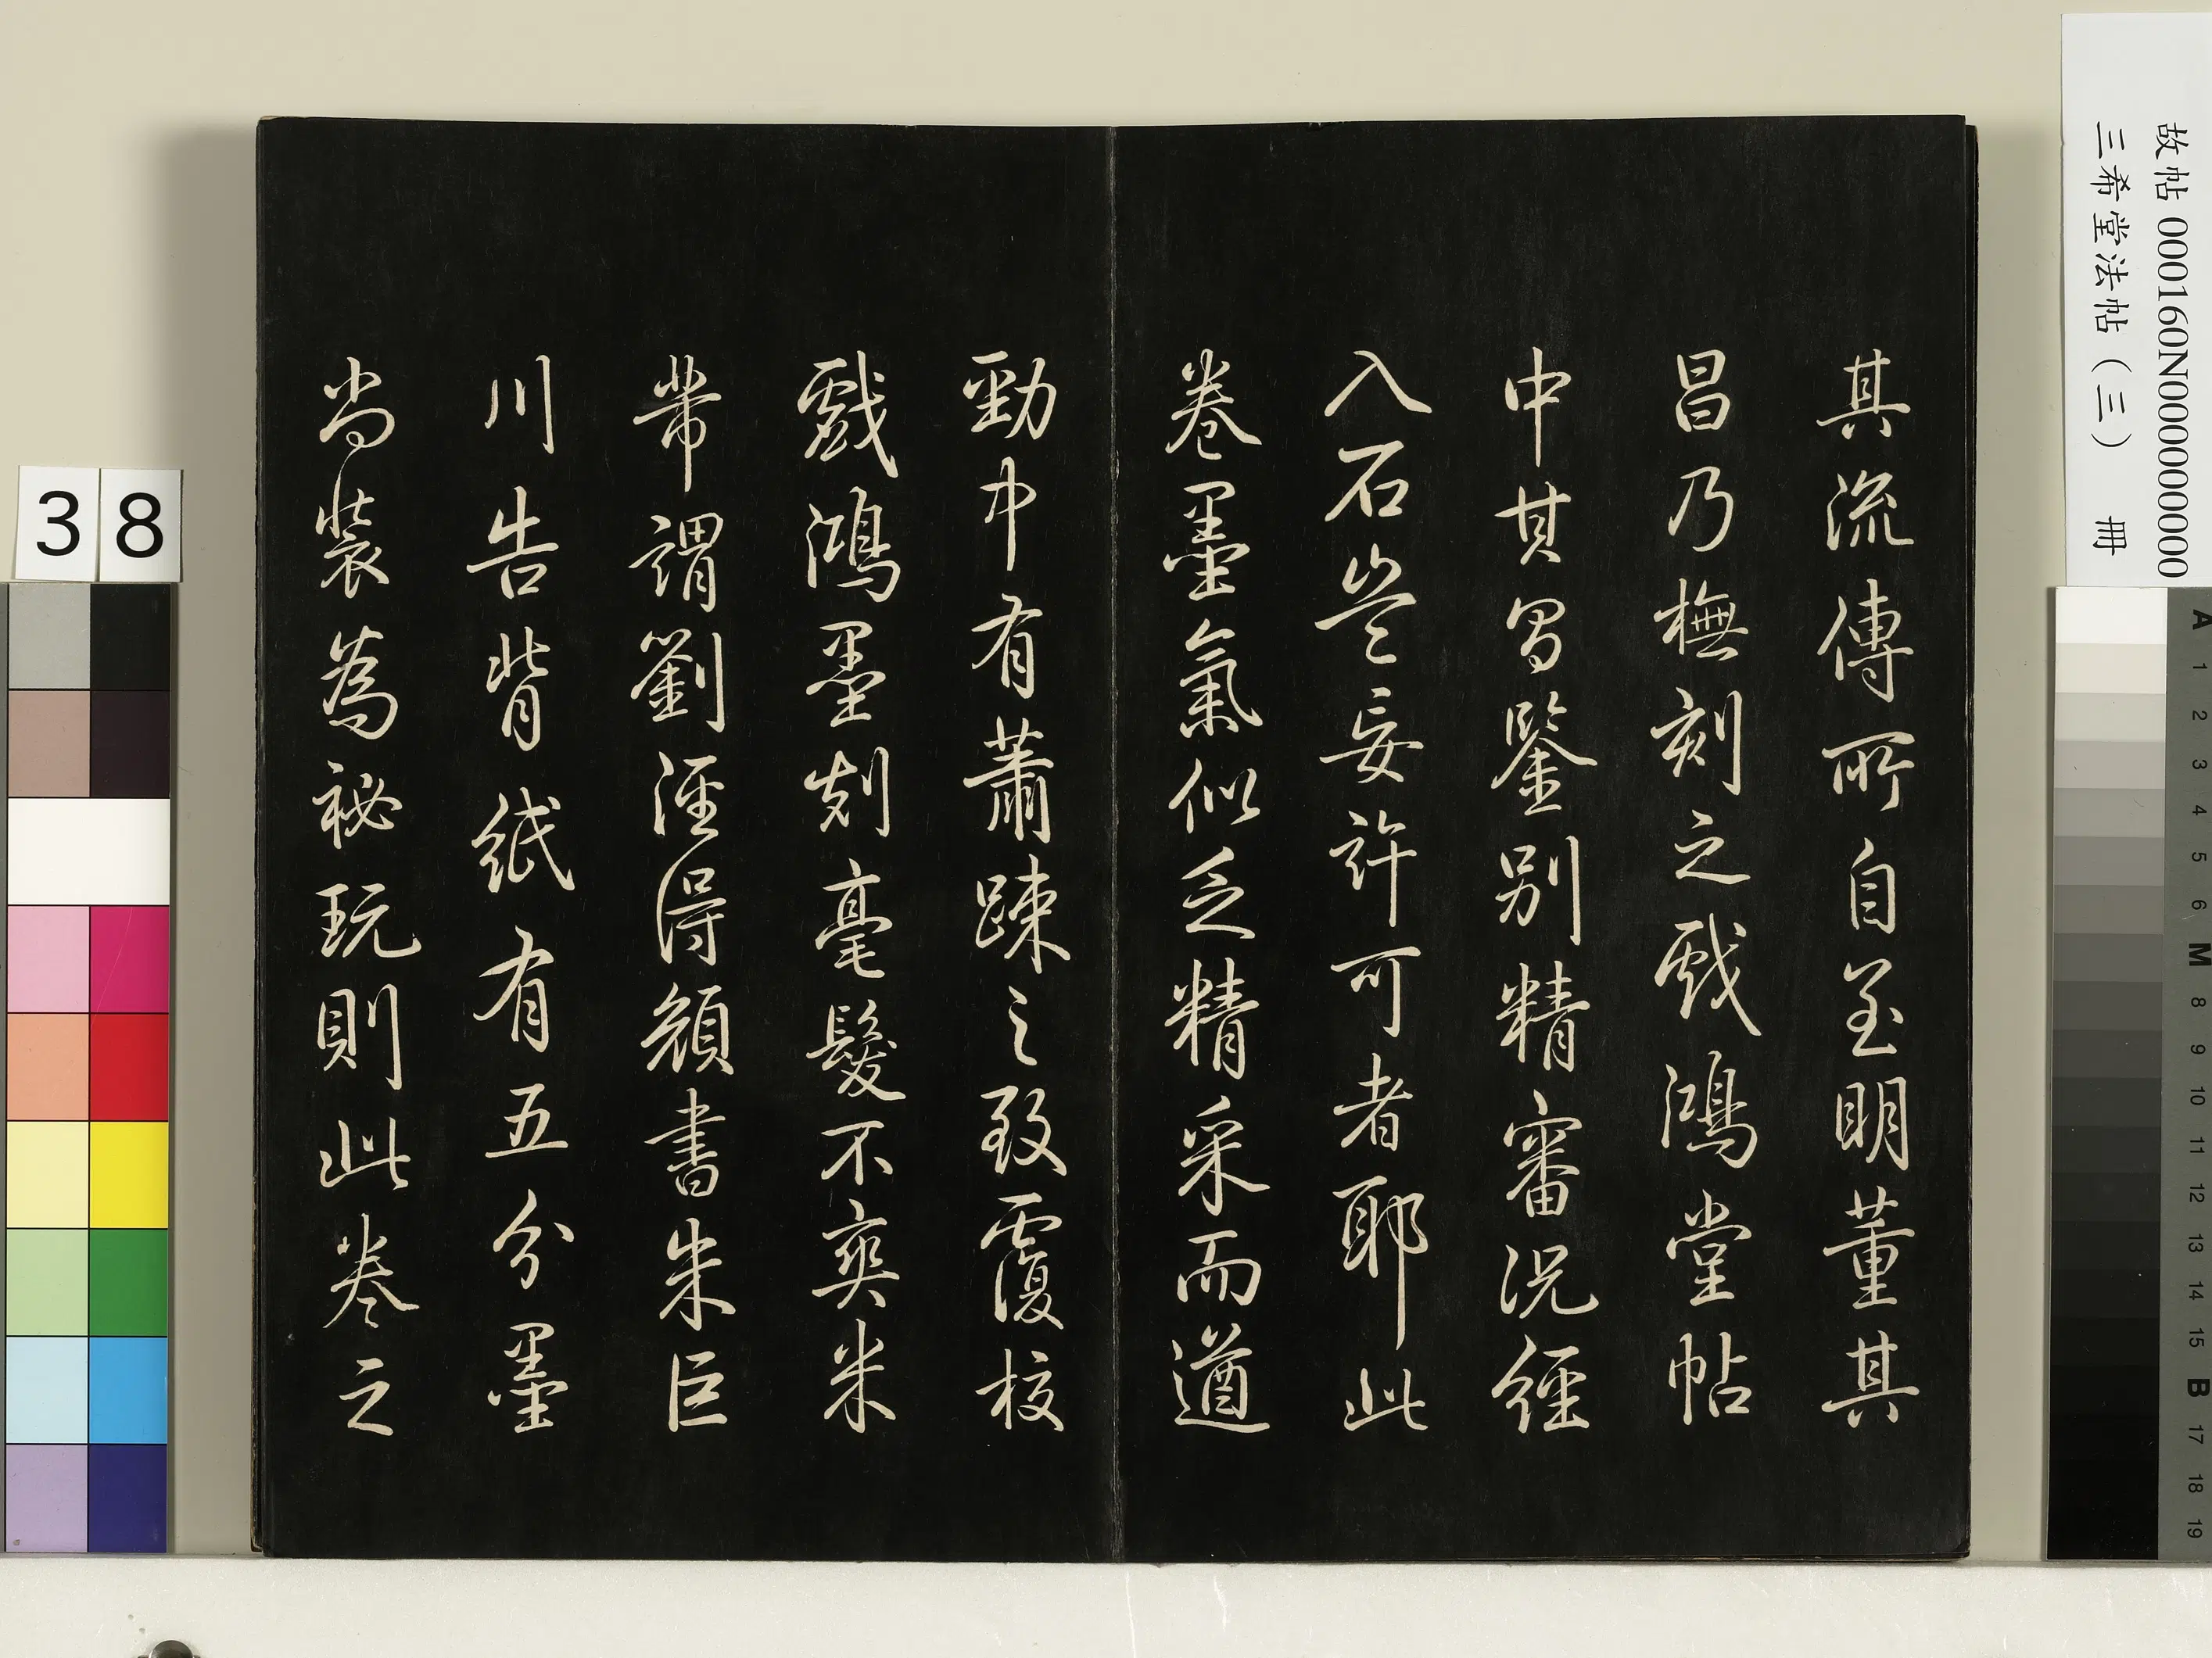 其流傳所自至明董其
昌乃橅刻之戲鴻堂帖
中其昌鑒別精審況經
入石豈妄許可者耶此
卷墨氣似乏精采而遒
勁中有蕭踈之致覆校
戲鴻墨刻毫髮不爽米
芾謂劉涇得顏書朱巨
川告背紙有五分墨
尚裝為祕玩則此卷之
故帖 000160N000000000
三希堂法帖（三） 冊
38
A 1 2 3 4 5 6 M 8 9 10 11 12 13 14 15 B 17 18 19